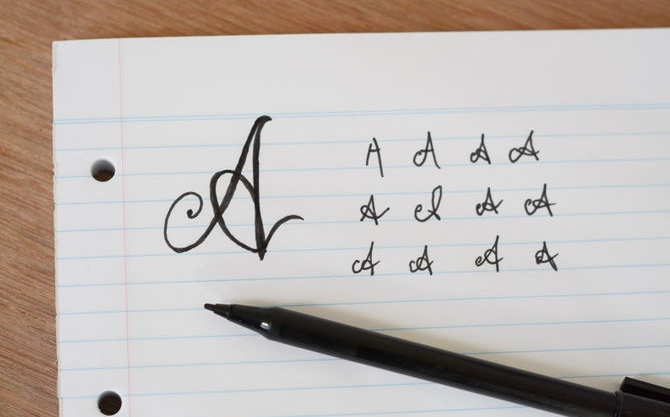 A A A A A
A A A A
A A A A